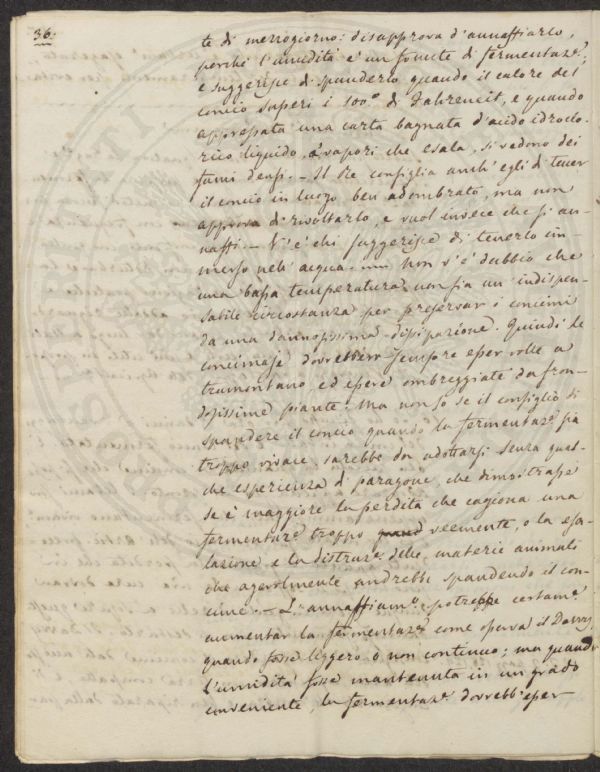 36.
te di mezzogiorno: disapprova d'annaffiarlo,
perchè l'umidità è un fomite di fermentaz.e,
e suggerisce di spanderlo quando il calore del
concio superi i 100.° di Fahreneit, e quando
appressata una carta bagnata d'acido idroclo-
rico liquido, a' vapori che esala, si vedono dei
fumi densi. - Il Re consiglia anch'egli di tener
il concio in luogo ben adombrato, ma non
approva di rivoltarlo, e vuol invece che si an-
naffi. - V'è chi suggerisce di tenerlo im-
merso nell'acqua. — Non v'è dubbio che
una bassa temperatura non sia un' indispen-
sabile circostanza per preservar i concimi
da una dannosissima dissipazione. Quindi le
concimaje dovrebbero sempre esser volte a
tramontano, ed essere ombreggiate da fron-
dosissime piante. Ma non so se il consiglio di
spandere il concio quando la fermentaz.e sia
troppo vivace, sarebbe da adottarsi senza qual-
che esperienza di paragone, che dimostrasse
se è maggiore la perdita che cagiona una
fermentaz.e troppo veemente, o la esa-
lazione e la distruz.e delle materie animali
che agevolmente andrebbe spandendo il con-
cime. - L'annaffiam.o potrebbe certam.e
aumentar la fermentaz.e come osserva il Davvy,
quando fosse leggero o non continuo; ma quando
l'umidità fosse mantenuta in un grado
conveniente, la fermentaz.e dovrebb'esser